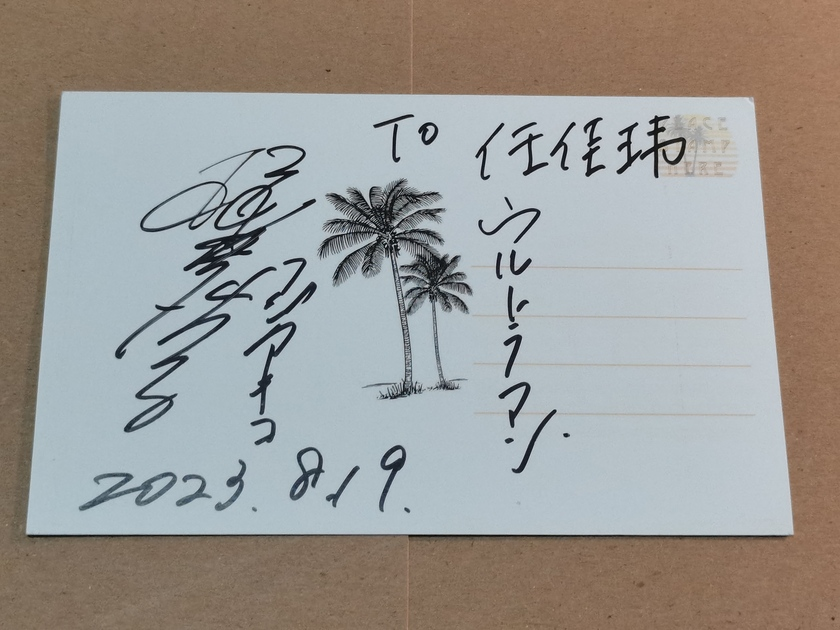 To 任佳玮
ウルトラマン
フジアキコ
2023. 8. 19.